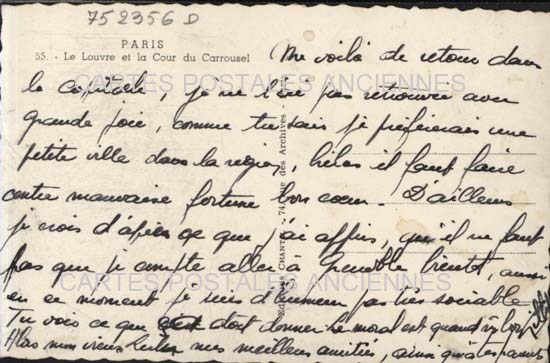 752356 D
PARIS
55. - Le Louvre et la Cour du Carrousel
Me voilà de retour dans
la capitale, je ne l'ai pas retrouvée avec
grande joie, comme tu sais je préférerais une
petite ville dans la région, hélas il faut faire
contre mauvaise fortune bon coeur. D'ailleurs
je crois d'après ce que j'ai appris, qu'il ne faut
pas que je compte aller à Grenoble bientôt, aussi
en ce moment je suis d'humeur pas très sociable
Tu vois ce que doit donner le moral est quand
mon vieux mes meilleures amitiés, ainsi qu'à tes parents
CARTES POSTALES ANCIENNES
CARTES POSTALES ANCIENNES
CHANTAL - 74, Rue des Archives